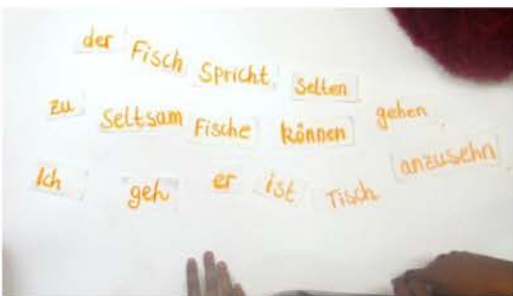 der Fisch Spricht Selten
zu seltsam Fische können gehen
Ich geh er ist Tisch anzusehn